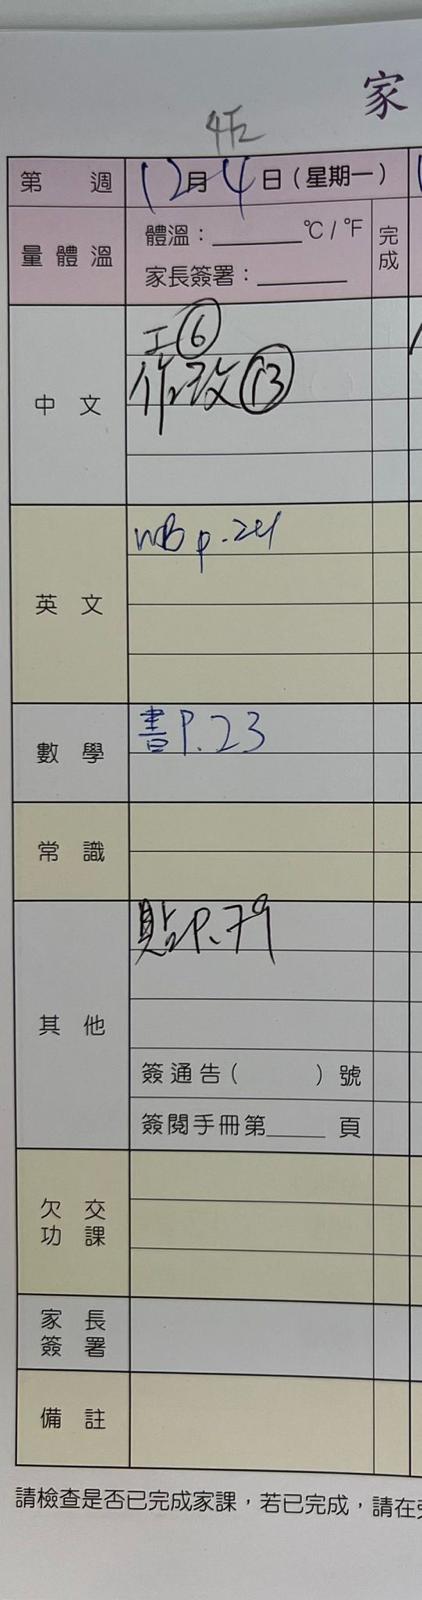 家
第 週
12月4日(星期一)
量體溫
體溫：______℃/℉
完成
家長簽署：______
中文
工⑥
作改⑬
英文
WB p.24
數學
書P.23
常識
其他
貼P.79
簽通告( )號
簽閱手冊第____頁
欠交功課
家長簽署
備註
請檢查是否已完成家課，若已完成，請在